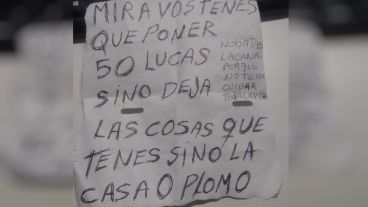 MIRA VOS TENES
QUE PONER
50 LUCAS
SINO DEJA
NO BATAS
LA CANA
PORQUE
NO TE VA
CUIDAR
TODA LA VIDA
LAS COSAS QUE
TENES SINO LA
CASA O PLOMO